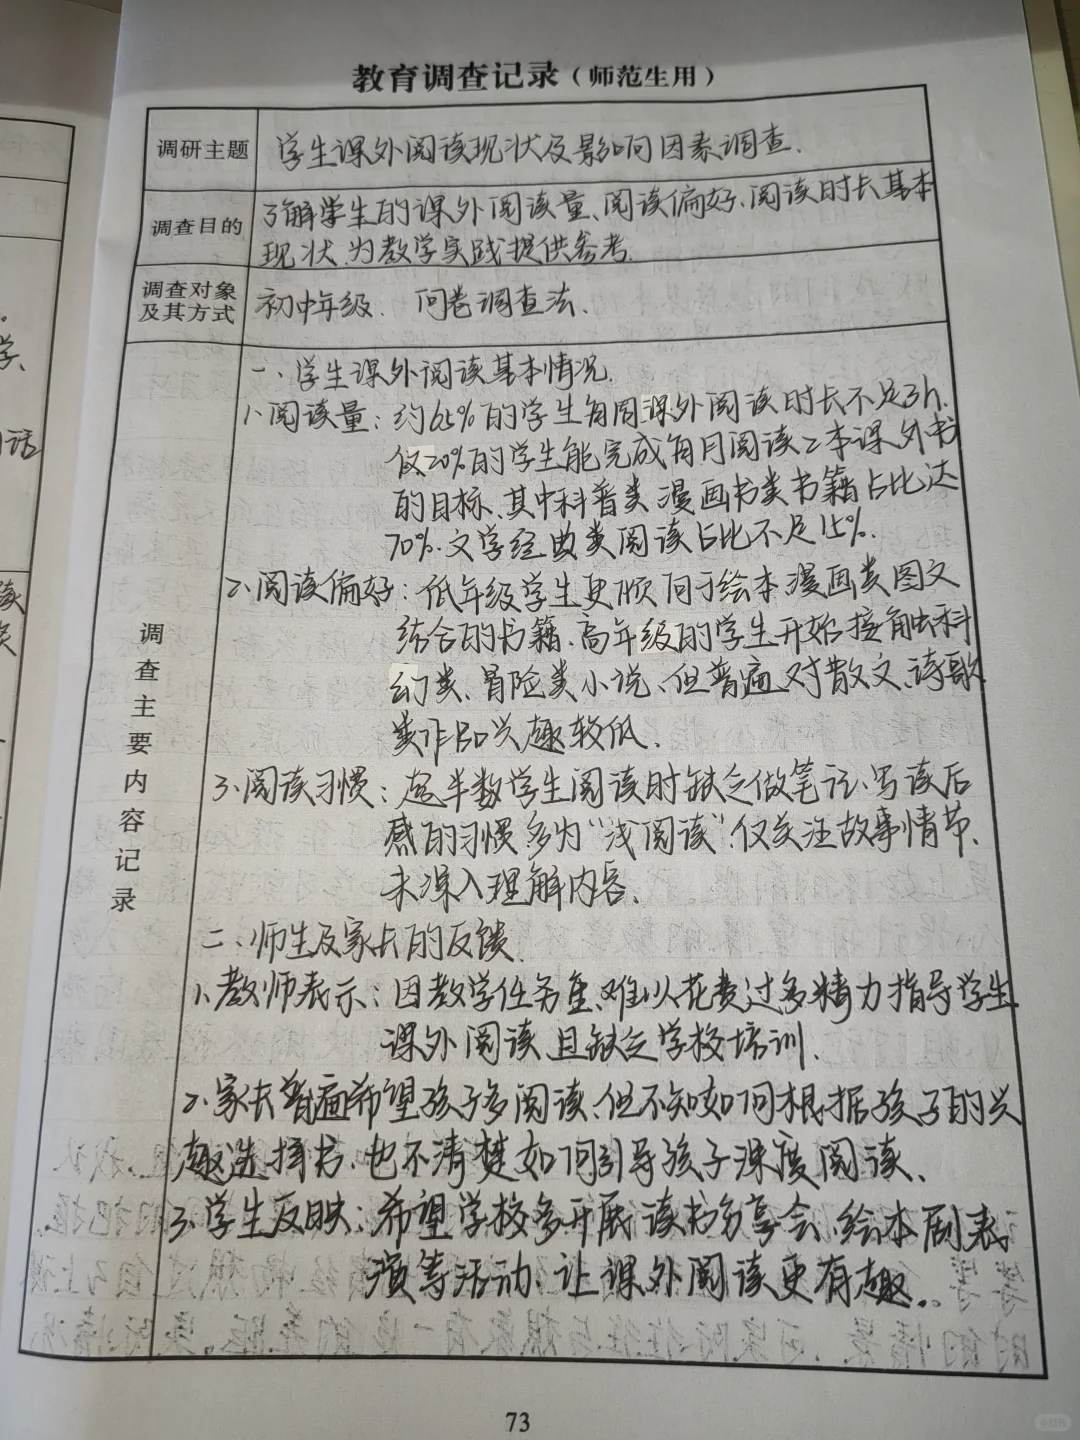 教育调查记录（师范生用）
调研主题
学生课外阅读现状及影响因素调查.
调查目的
了解学生的课外阅读量、阅读偏好、阅读时长基本
现状、为教学实践提供参考.
调查对象
及其方式
初中年级. 问卷调查法.
调查主要内容记录
一、学生课外阅读基本情况.
1、阅读量：约65%的学生每周课外阅读时长不足3h.
仅20%的学生能完成每月阅读2本课外书
的目标、其中科普类漫画书类书籍占比达
70%.文学经典类阅读占比不足15%.
2、阅读偏好：低年级学生更倾向于绘本漫画类图文
结合的书籍、高年级的学生开始接触科
幻类、冒险类小说、但普遍对散文、诗歌
类作品兴趣较低.
3、阅读习惯：超半数学生阅读时缺乏做笔记、写读后
感的习惯多为“浅阅读”.仅关注故事情节.
未深入理解内容.
二、师生及家长的反馈.
1、教师表示：因教学任务重、难以花费过多精力指导学生
课外阅读、且缺乏学校培训.
2、家长普遍希望孩子多阅读、但不知如何根据孩子的兴
趣选择书、也不清楚如何引导孩子深度阅读、
3、学生反映：希望学校多开展读书分享会、绘本剧表
演等活动、让课外阅读更有趣.
73